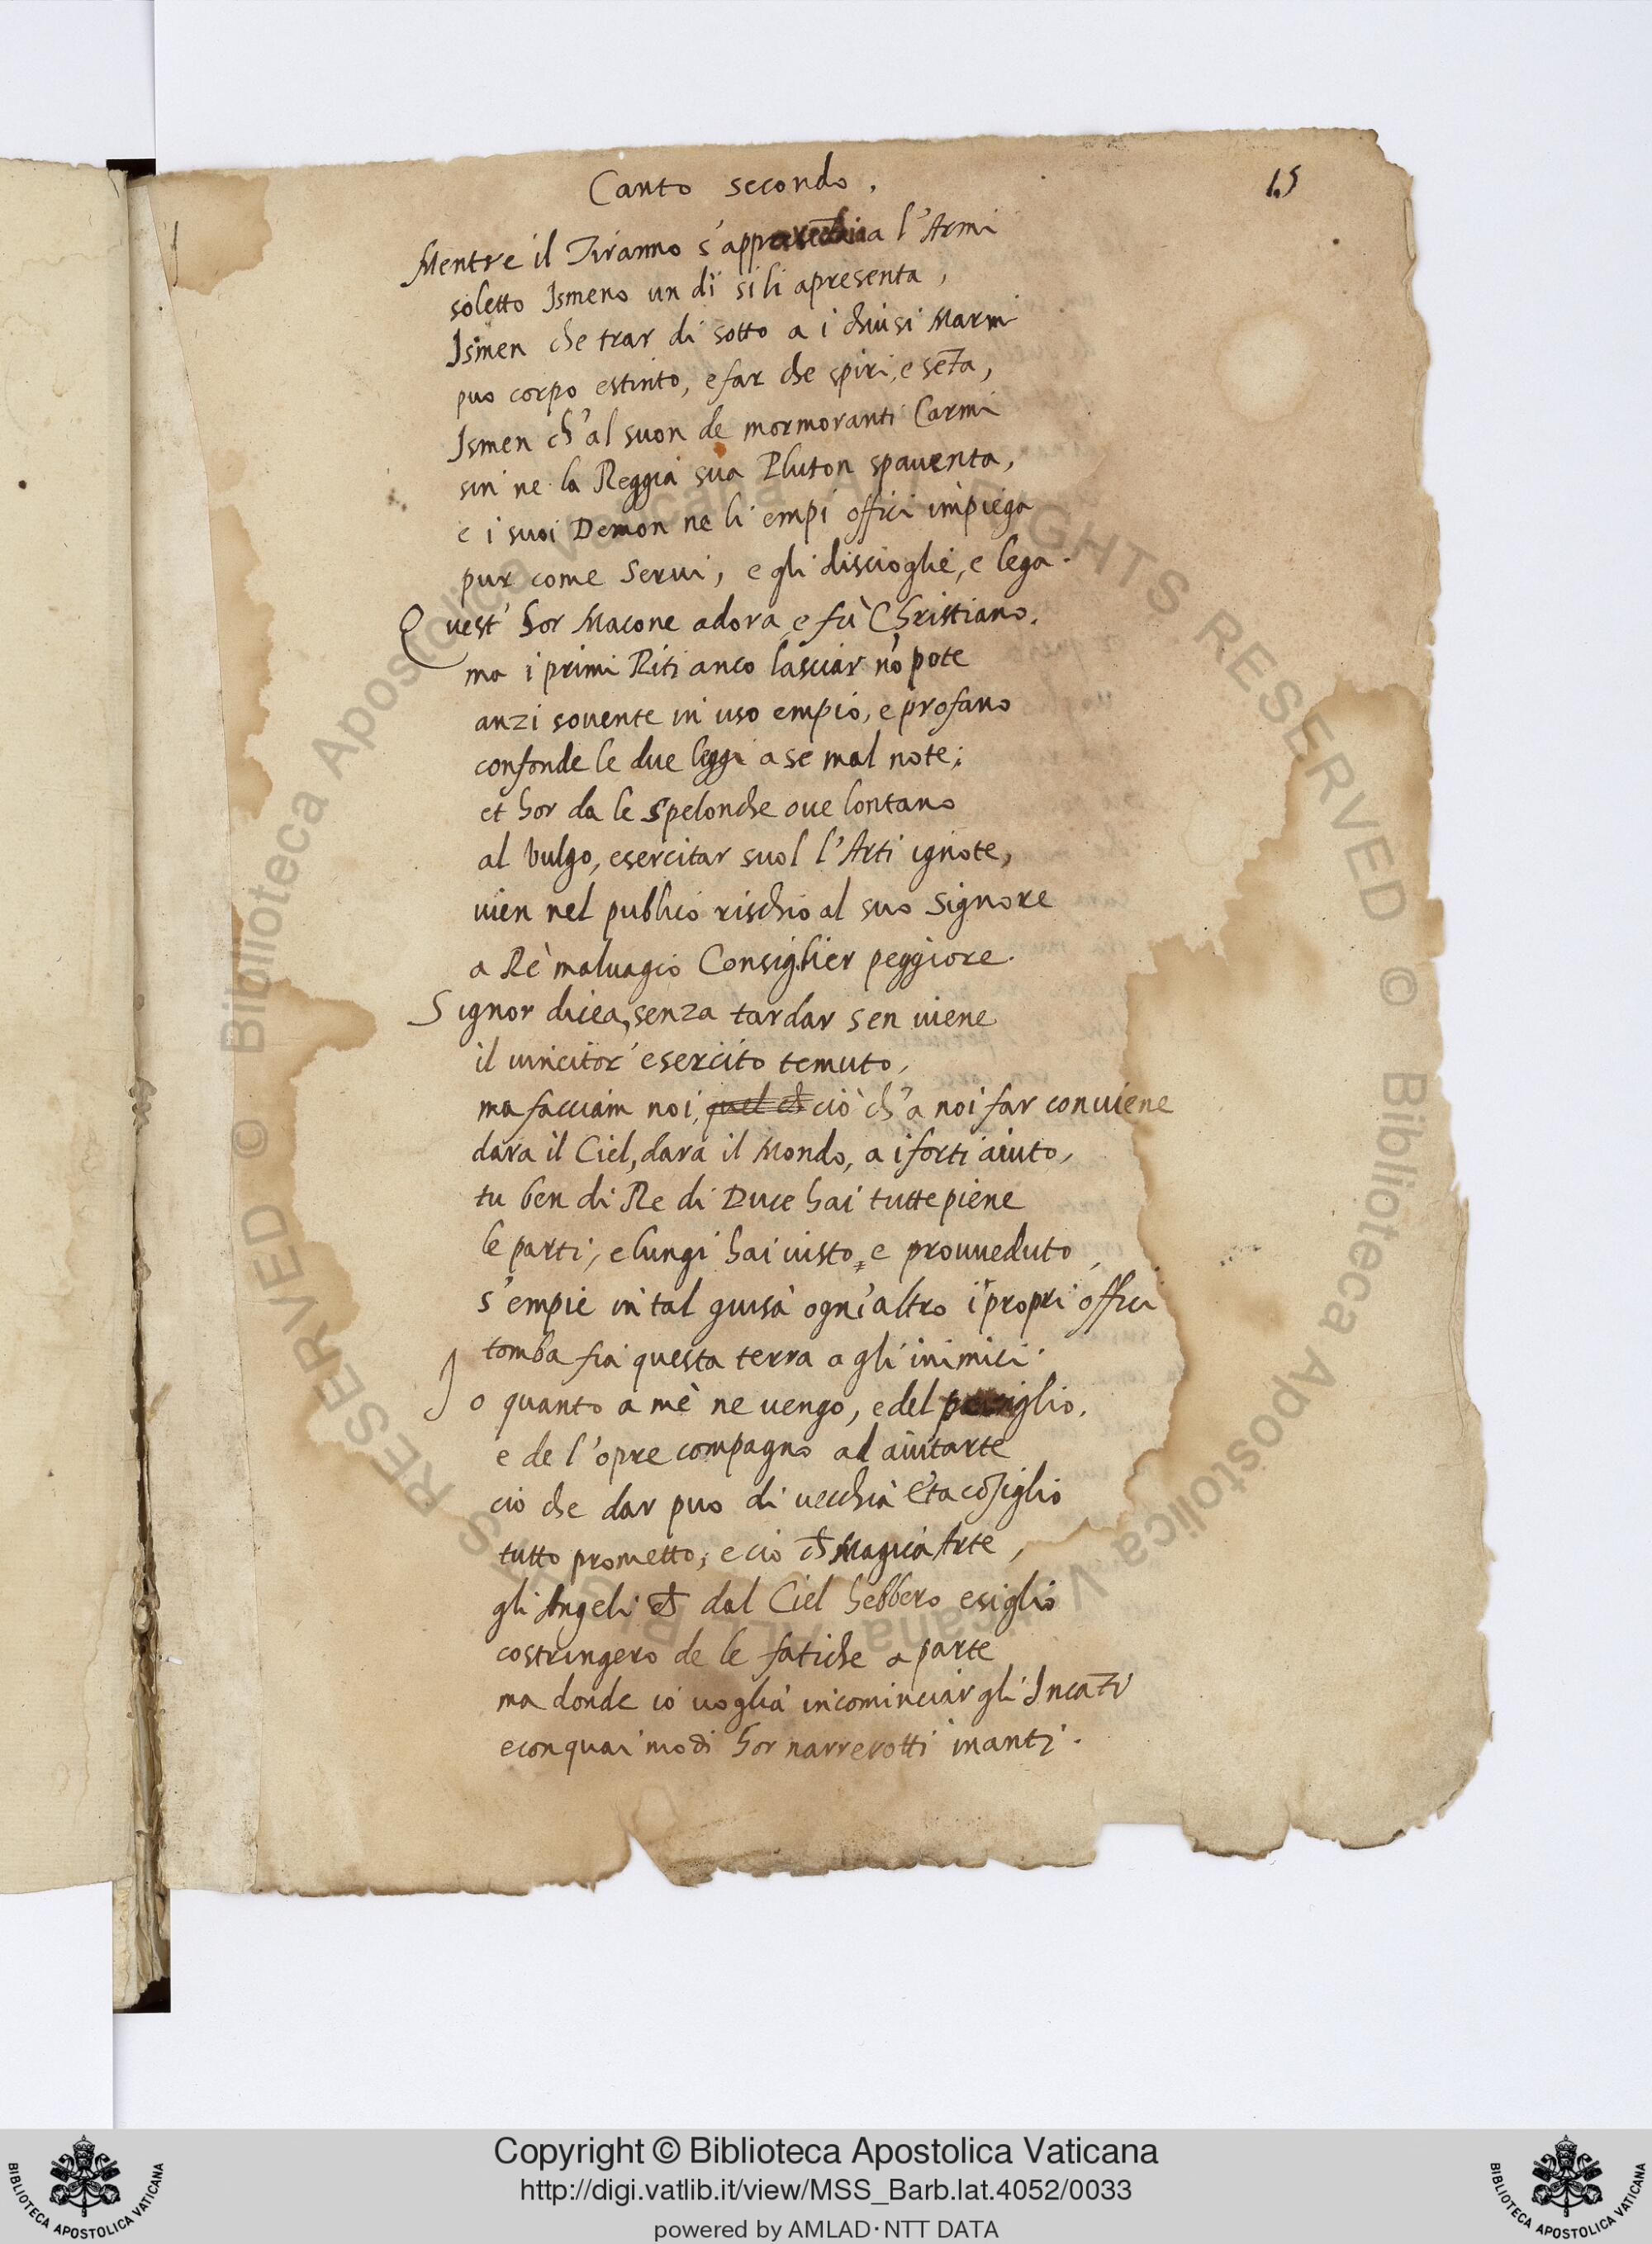 Canto secondo.
15
Mentre il Tiranno s'apparecchia l'Armi
soletto Ismeno un dì si li apresenta,
Ismen che trar di sotto a i chiusi Marmi
puo corpo estinto, e far che spiri, e señta,
Ismen ch'al suon de mormoranti Carmi
sin ne la Reggia sua Pluton spauenta,
e i suoi Demon ne li empi offici impiega
pur come Serui, e gli discioglie, e lega.
Quest' hor Macone adora, e fù Christiano,
ma i primi Riti anco lasciar nõ pote
anzi souente in uso empio, e profano
confonde le due leggi a se mal note;
et hor da le Spelonche oue lontano
al vulgo, esercitar suol l'Arti ignote,
uien nel publico rischio al suo Signore
a Rè maluagio Consiglier peggiore.
Signor dicea, senza tardar sen uiene
il uincitor esercito temuto,
ma facciam noi, quel ch ciò ch'a noi far conuiene
dara il Ciel, dara il Mondo, a i forti aiuto,
tu ben di Re di Duce hai tutte piene
le parti, e lungi hai uisto, e prouueduto,
s'empie in tal guisa ogn'altro i propri offici
tomba fia questa terra a gli inimici.
Io quanto a mè ne uengo, e del periglio,
e de l'opre compagno ad aiutarte
ciò che dar puo di uecchia età cõsiglio
tutto prometto, e ciò ch Magica Arte,
gli Angeli ch dal Ciel hebbero esiglio
costringero de le fatiche a parte
ma donde io uoglia incominciar gli Incãti
e con quai modi hor narrerotti inanti.
Copyright © Biblioteca Apostolica Vaticana
http://digi.vatlib.it/view/MSS_Barb.lat.4052/0033
powered by AMLAD·NTT DATA
BIBLIOTECA APOSTOLICA VATICANA
BIBLIOTECA APOSTOLICA VATICANA
© Biblioteca Apostolica Vaticana ALL RIGHTS RESERVED © Biblioteca Apostolica Vaticana ALL RIGHTS RESERVED